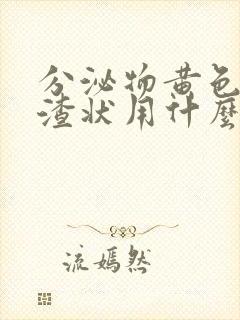 分泌物黄色
渣状用什麼
流嫣然